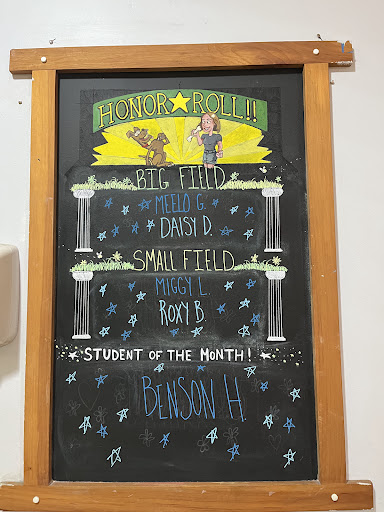 HONOR ROLL!!
BIG FIELD
MEELO G.
DAISY D.
SMALL FIELD
MIGGY L.
ROXY B.
STUDENT OF THE MONTH!
BENSON H.